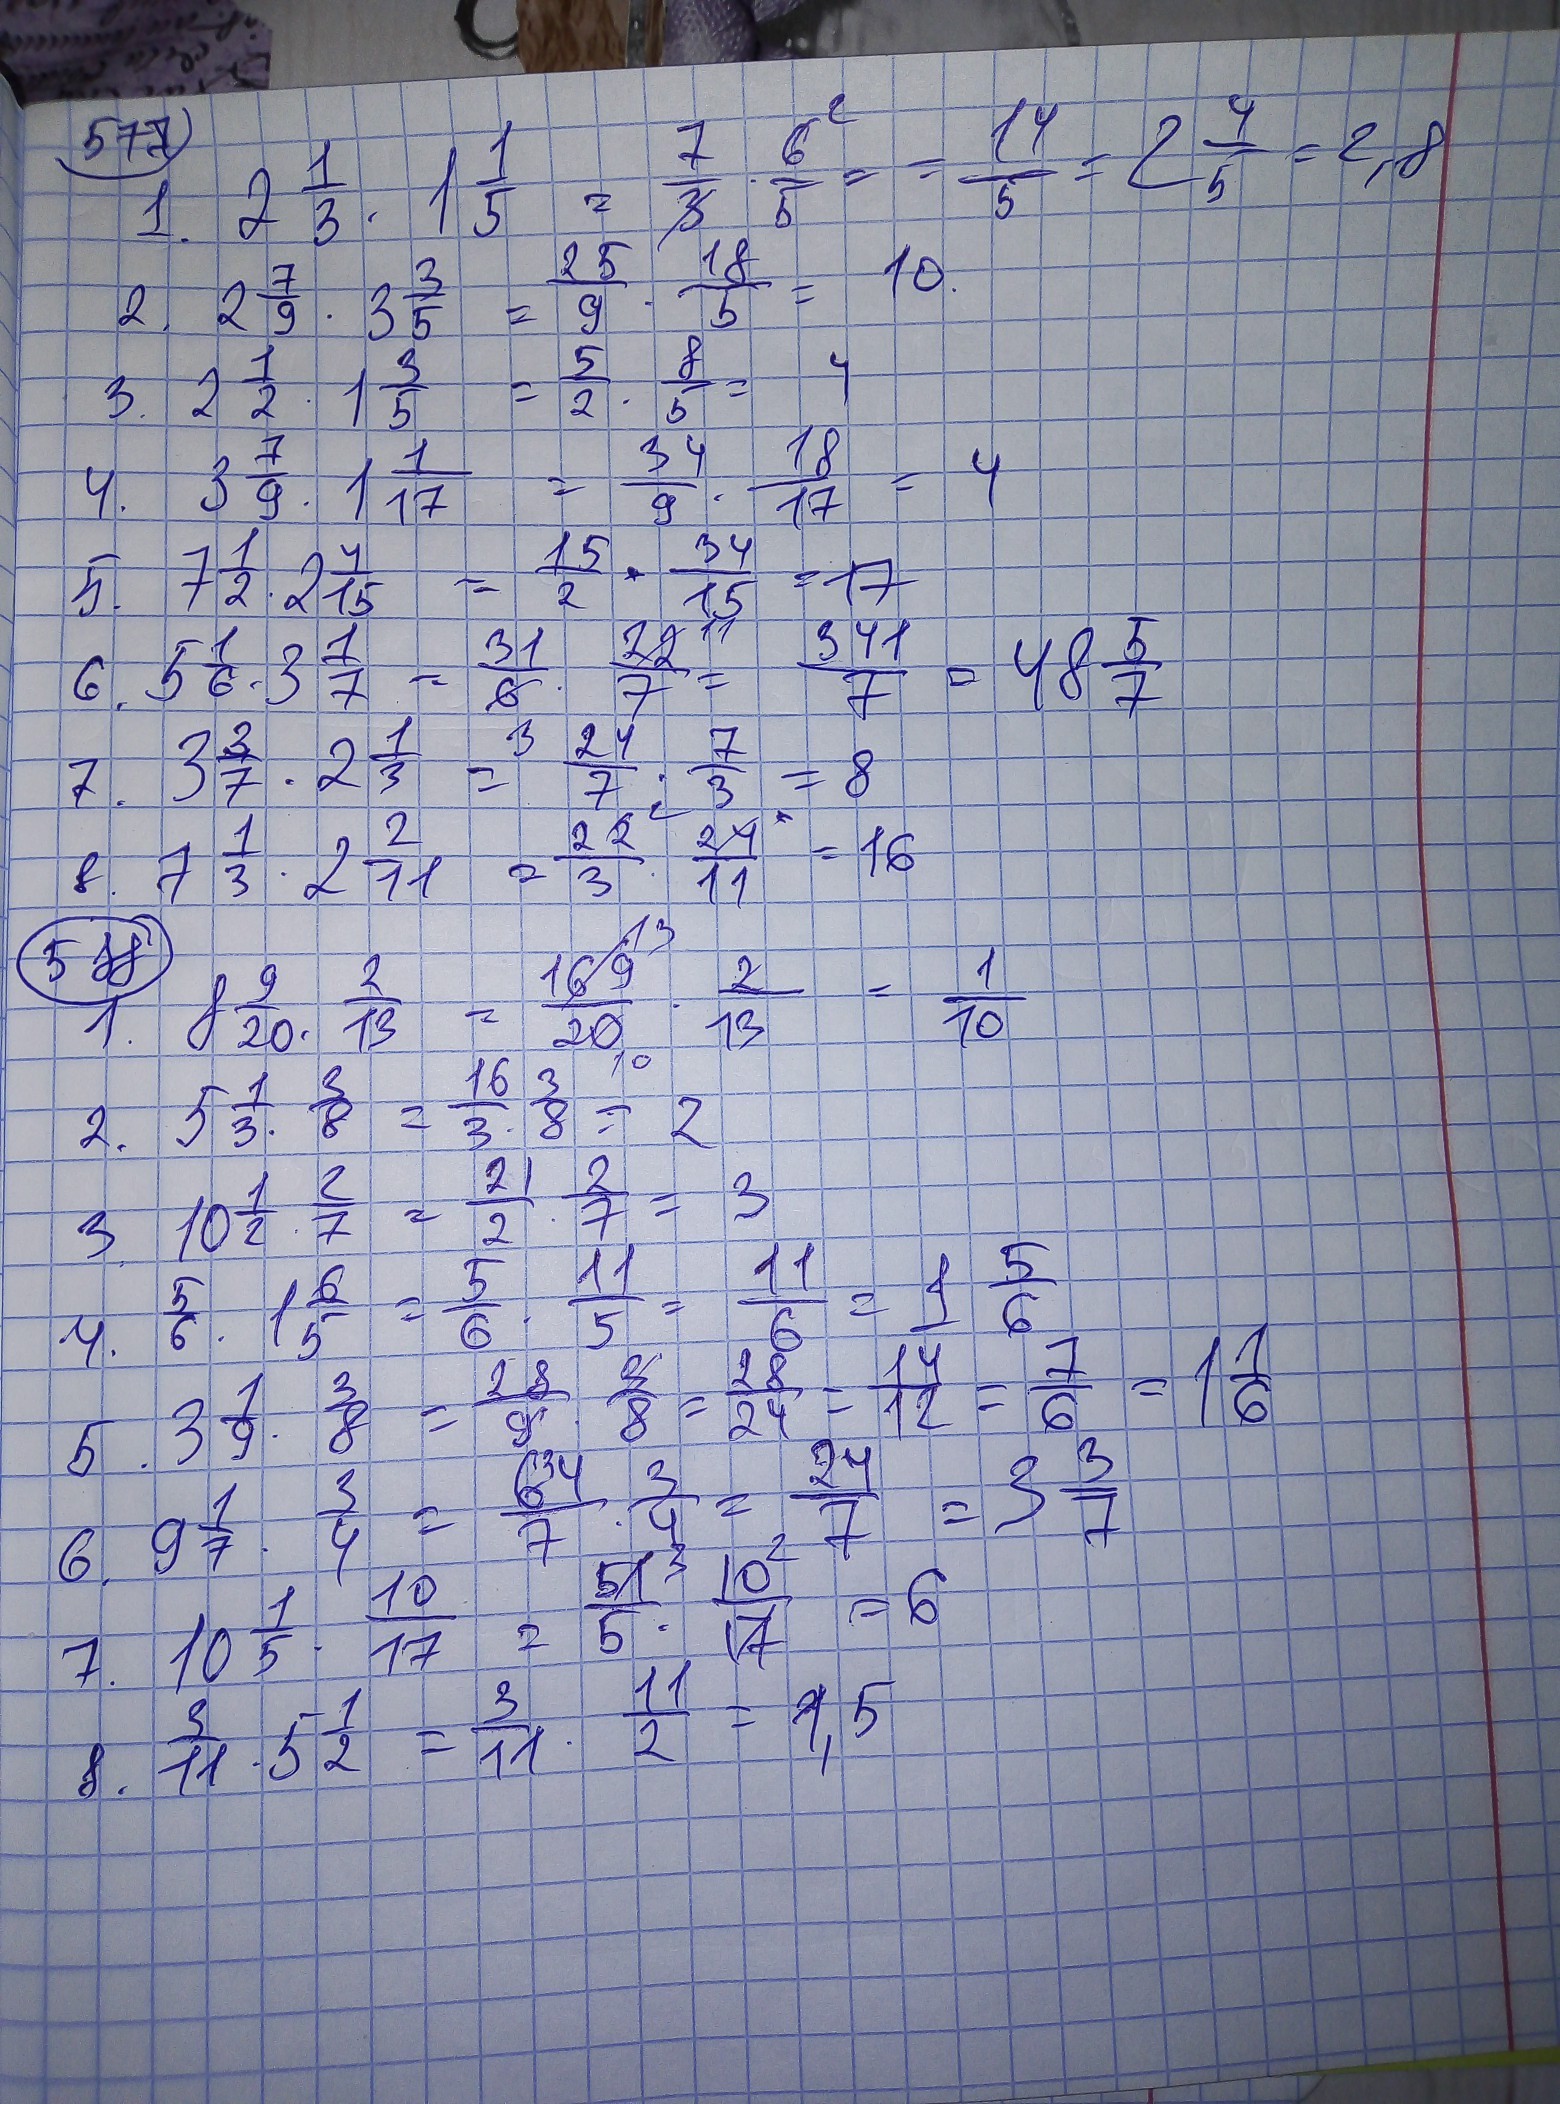 577
1. 2 1/3 · 1 1/5 = 7/3 · 6/5 2 = = 14/5 = 2 4/5 = 2,8
2. 2 7/9 · 3 3/5 = 25/9 · 18/5 = 10.
3. 2 1/2 · 1 3/5 = 5/2 · 8/5 = 4
4. 3 7/9 · 1 1/17 = 34/9 · 18/17 = 4
5. 7 1/2 · 2 4/15 = 15/2 · 34/15 = 17
6. 5 1/6 · 3 1/7 = 31/6 · 22/7 11 = 341/7 = 48 5/7
7. 3 3/7 · 2 1/3 = 3 24/7 · 7/3 = 8
8. 7 1/3 · 2 2/11 = 22/3 2 · 24/11 = 16
5
1. 8 9/20 · 2/13 = 169/20 13 10 · 2/13 = 1/10
2. 5 1/3 · 3/8 = 16/3 · 3/8 = 2
3. 10 1/2 · 2/7 = 21/2 · 2/7 = 3
4. 5/6 · 1 6/5 = 5/6 · 11/5 = 11/6 = 1 5/6
5. 3 1/9 · 3/8 = 28/9 · 3/8 = 28/24 = 14/12 = 7/6 = 1 1/6
6. 9 1/7 · 3/4 = 64/7 · 3/4 = 24/7 = 3 3/7
7. 10 1/5 · 10/17 = 51/5 3 · 10/17 2 = 6
8. 3/11 · 5 1/2 = 3/11 · 11/2 = 1,5